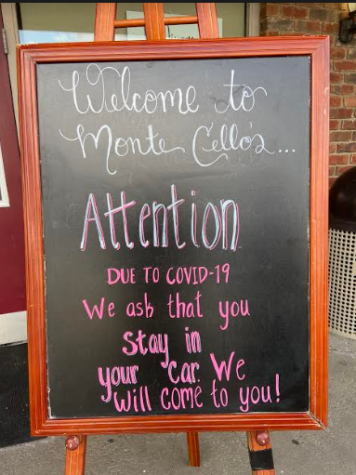 Welcome to
Monte Cello's...
Attention
DUE TO COVID-19
We ask that you
Stay in
your car. We
will come to you!